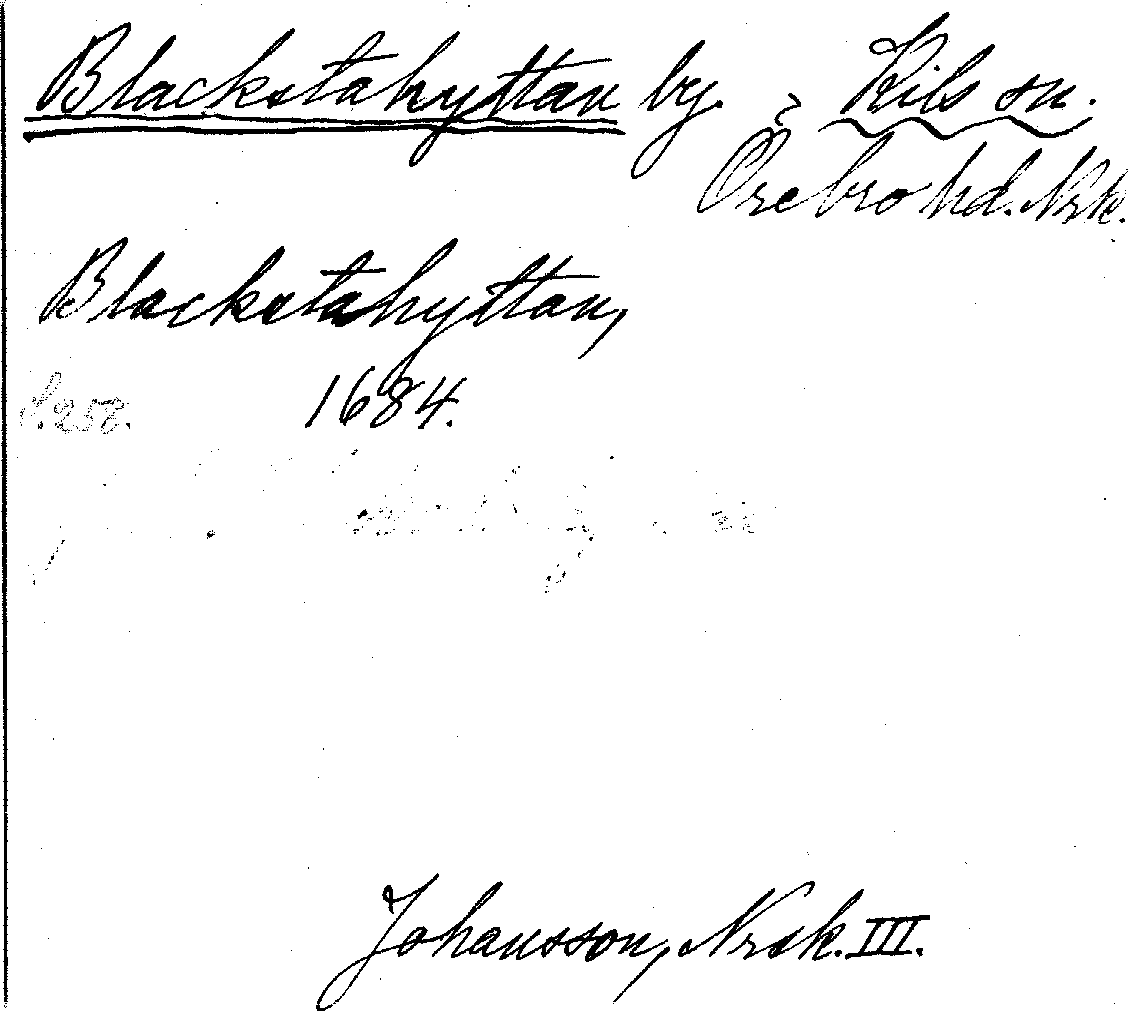 Blackstahyttan by. Kils sn.
Örebro hd. Nrk.
Blackstahyttan,
S. 258. 1684.
Johansson, Nrsk. III.